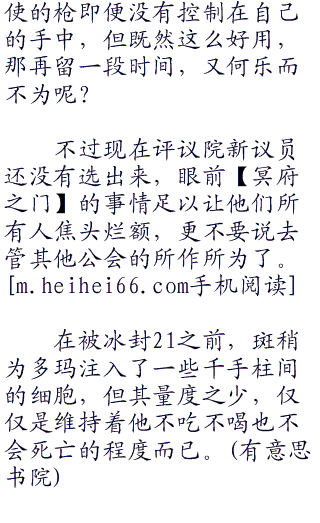 使的枪即便没有控制在自己
的手中，但既然这么好用，
那再留一段时间，又何乐而
不为呢？
不过现在评议院新议员
还没有选出来，眼前【冥府
之门】的事情足以让他们所
有人焦头烂额，更不要说去
管其他公会的所作所为了。
[m.heihei66.com手机阅读]
在被冰封21之前，斑稍
为多玛注入了一些千手柱间
的细胞，但其量度之少，仅
仅是维持着他不吃不喝也不
会死亡的程度而已。(有意思
书院)